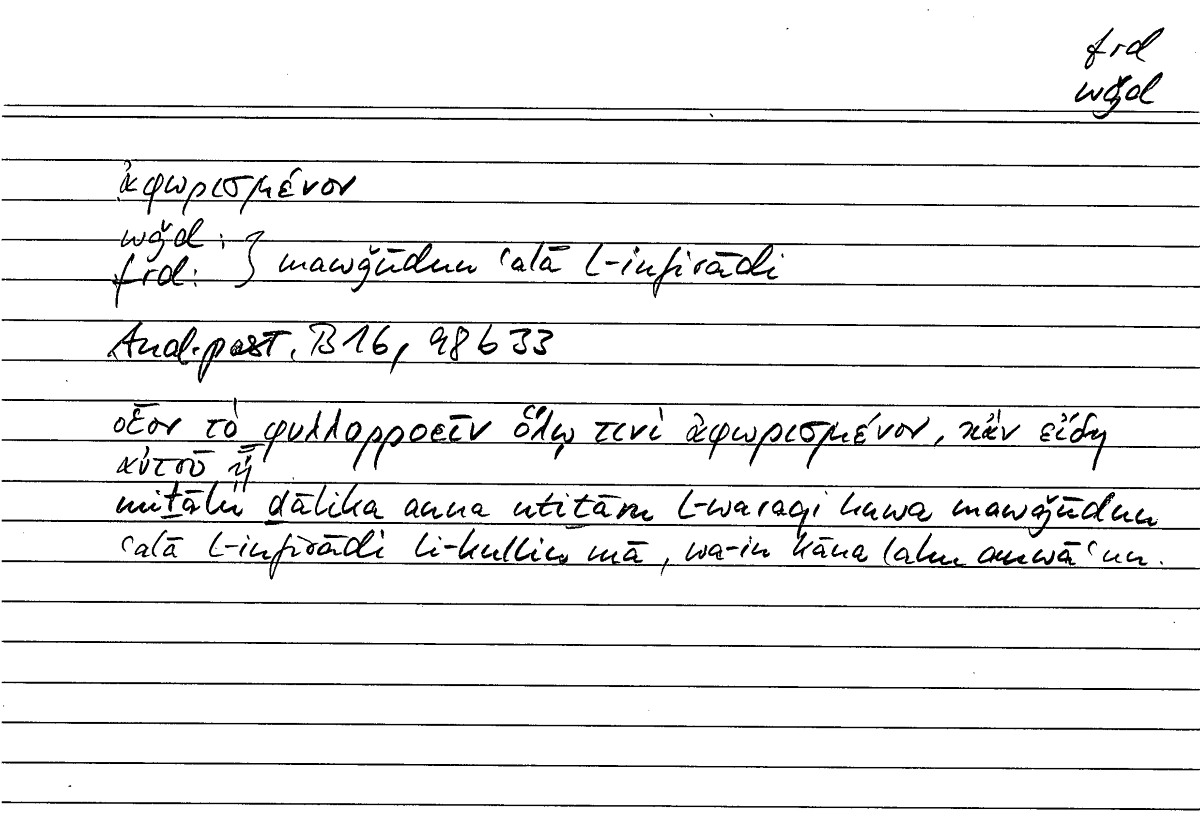 frd
wǧd
ἀφωρισμένον
wǧd :
frd: } mawǧūdun ʿalā l-infirādi
Anal. post. B 16, 98 b 33
οἷον τὸ φυλλορροεῖν ὅλῳ τινὶ ἀφωρισμένον, κἂν εἴδη
αὐτοῦ ᾖ
miṯālu ḏālika anna ntiṯāra l-waraqi huwa mawǧūdun
ʿalā l-infirādi li-kullin mā, wa-in kāna lahu anwāʿun.